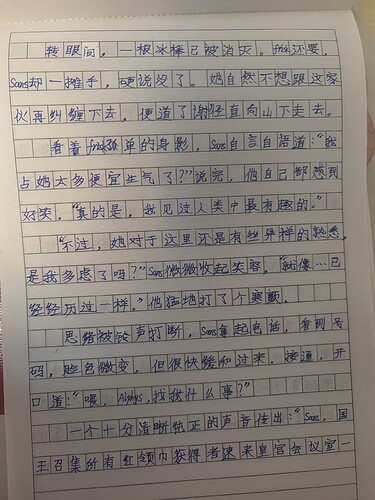 转眼间，一根冰棒已被消灭。frisk还要，
Sans却一摊手，硬说没了。她自然不想跟这家
伙再纠缠下去，便道了谢径直向山下走去。
看着frisk孤单的身影，Sans自言自语道："我
占她太多便宜生气了？"说完，他自己都感到
好笑。"真的是，我见过人类中最有趣的。"
"不过，她对于这里还是有些异样的熟悉，
是我多虑了吗？"Sans微微收起笑容，"就像…已
经经历过一样。"他猛地打了个寒颤。
思绪被铃声打断，Sans拿起电话，看到号
码，脸色微变，但很快缓和过来，接通，开
口道："喂，Alphys，找我什么事？"
一个十分清晰纯正的声音传出："Sans，国
王召集所有红领巾获得者速来皇宫会议室一